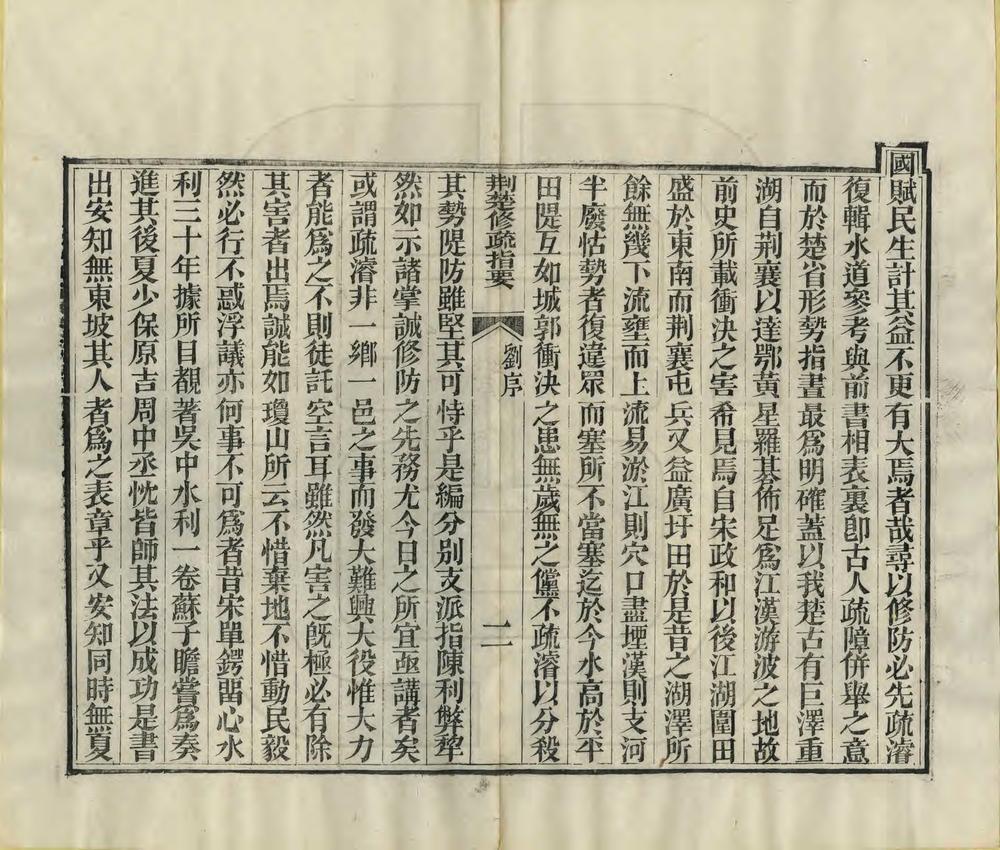 國賦民生計其益不更有大焉者哉尋以修防必先疏濬
復輯水道參考與前書相表裏卽古人疏障併舉之意
而於楚省形勢指畫最爲明確蓋以我楚古有巨澤重
湖自荆襄以達鄂黃星羅棊佈足爲江漢游波之地故
前史所載衝決之害希見焉自宋政和以後江湖圍田
盛於東南而荆襄屯兵又益廣圩田於是昔之湖澤所
餘無幾下流壅而上流易淤江則穴口盡堙漢則支河
半廢怙勢者復違眾而塞所不當塞迄於今水高於平
田隄互如城郭衝決之患無歲無之儻不疏濬以分殺
荆楚修疏指要
劉序
二
其勢隄防雖堅其可恃乎是編分別支派指陳利弊犂
然如示諸掌誠修防之先務尤今日之所宜亟講者矣
或謂疏濬非一鄉一邑之事而發大難興大役惟大力
者能爲之不則徒託空言耳雖然凡害之旣極必有除
其害者出焉誠能如瓊山所云不惜棄地不惜動民毅
然必行不惑浮議亦何事不可爲者昔宋單鍔畱心水
利三十年據所目覩著吳中水利一卷蘇子瞻嘗爲奏
進其後夏少保原吉周中丞忱皆師其法以成功是書
出安知無東坡其人者爲之表章乎又安知同時無夏